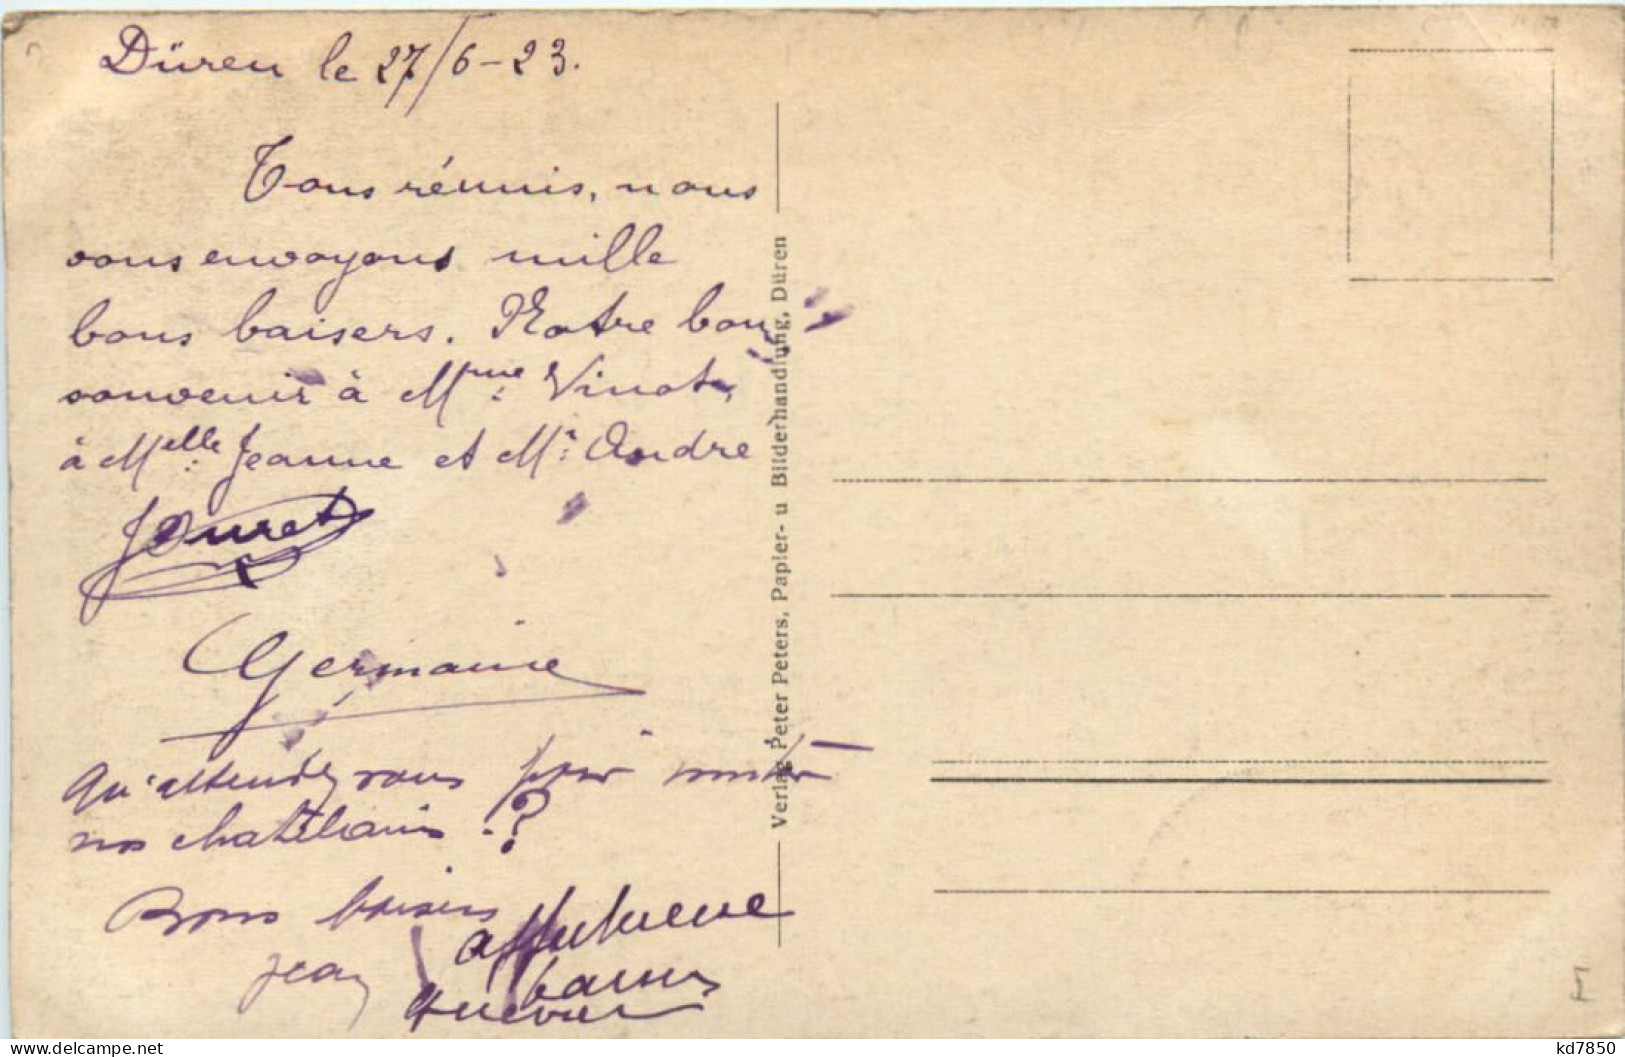 Düren le 27/6-23.
Tous réunis, nous
vous envoyons mille
bons baisers. Notre bon
souvenir à Mme Vinot,
à Melle Jeanne et Mr Andre
JDuret
Germaine
Qu'attendez vous pour
nos chatelains ?
Bons baisers
Jean
baisers
Verlag Peter Peters, Papier- u Bilderhandlung, Düren
I
https://www.delcampe.net
kd7850